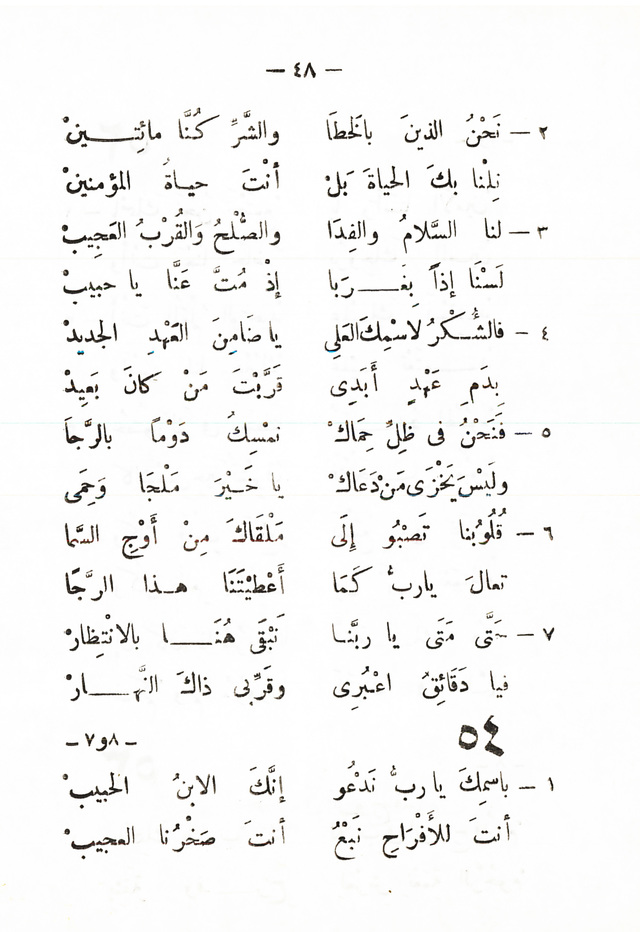 — ٤٨ —
٢ — نَحْنُ الذينَ بالخَطَا والشَّرِّ كُنَّا مائِتِـــينْ
نِلْنا بكَ الحياةَ بَلْ أنْتَ حياةُ المؤمنينْ
٣ — لنا السَّلامُ والفِدَا والصُّلْحُ وَالقُرْبُ العَجِيبْ
لَسْنَا إذاً بِغُــــرَبا إذْ مُتَّ عَنَّا يا حبيبْ
٤ — فالشُّـكْرُ لاسْمِكَ العَلِي يا ضَامِنَ العَهْدِ الجديدْ
بِدَمِ عَهْدٍ أَبَدِى قَرَّبْتَ مَنْ كانَ بَعِيدْ
٥ — فَنَحْنُ فى ظِلِّ حِمَاكْ نمْسِكُ دَوْماً بالرَّجَا
ولَيْسَ يَخْزَى مَنْ دَعَاكْ يا خَـيْرَ مَلْجَا وَحِمَى
٦ — قُلُوبُنا تَصْبُو إِلَى مَلْقَاكَ مِنْ أَوْجِ السَّما
تعالَ ياربُّ كَمَا أَعْطَيْتَنَا هـذا الرَّجَا
٧ — حَتَّى مَتَى يا ربَّنـا نَبْقَى هُنَــــا بالانْتِظارْ
فيا دَقَائِقُ اعْبُرِى وقَرِّبِى ذاكَ النَّهــــارْ
٥٤ – ٨و٧ –
١ — باسمِكَ ياربُّ نَدْعُو إنَّكَ الابنُ الحَبيبْ
أنتَ للأَفْرَاحِ نَبْعُ أنتَ صَخْرُنا العجيبْ